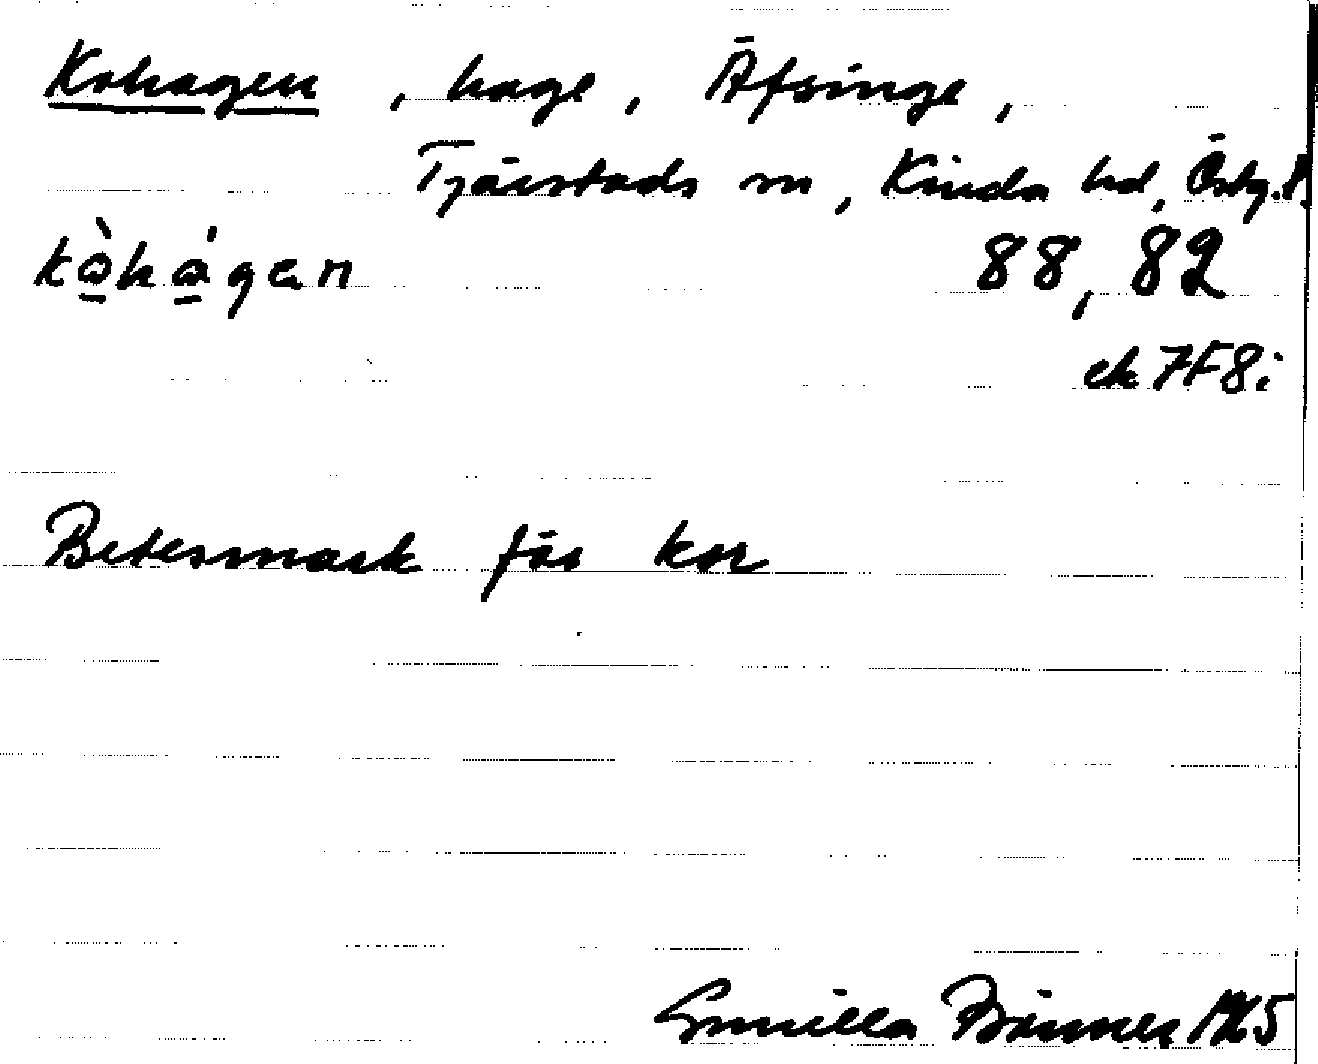 Kohagen, hage, Äfsinge,
Tjärstads sn, Kinda hd, Östg.l.
kòhágen 88,82
ek 7F8i
Betesmark för kor
Gunilla 1965